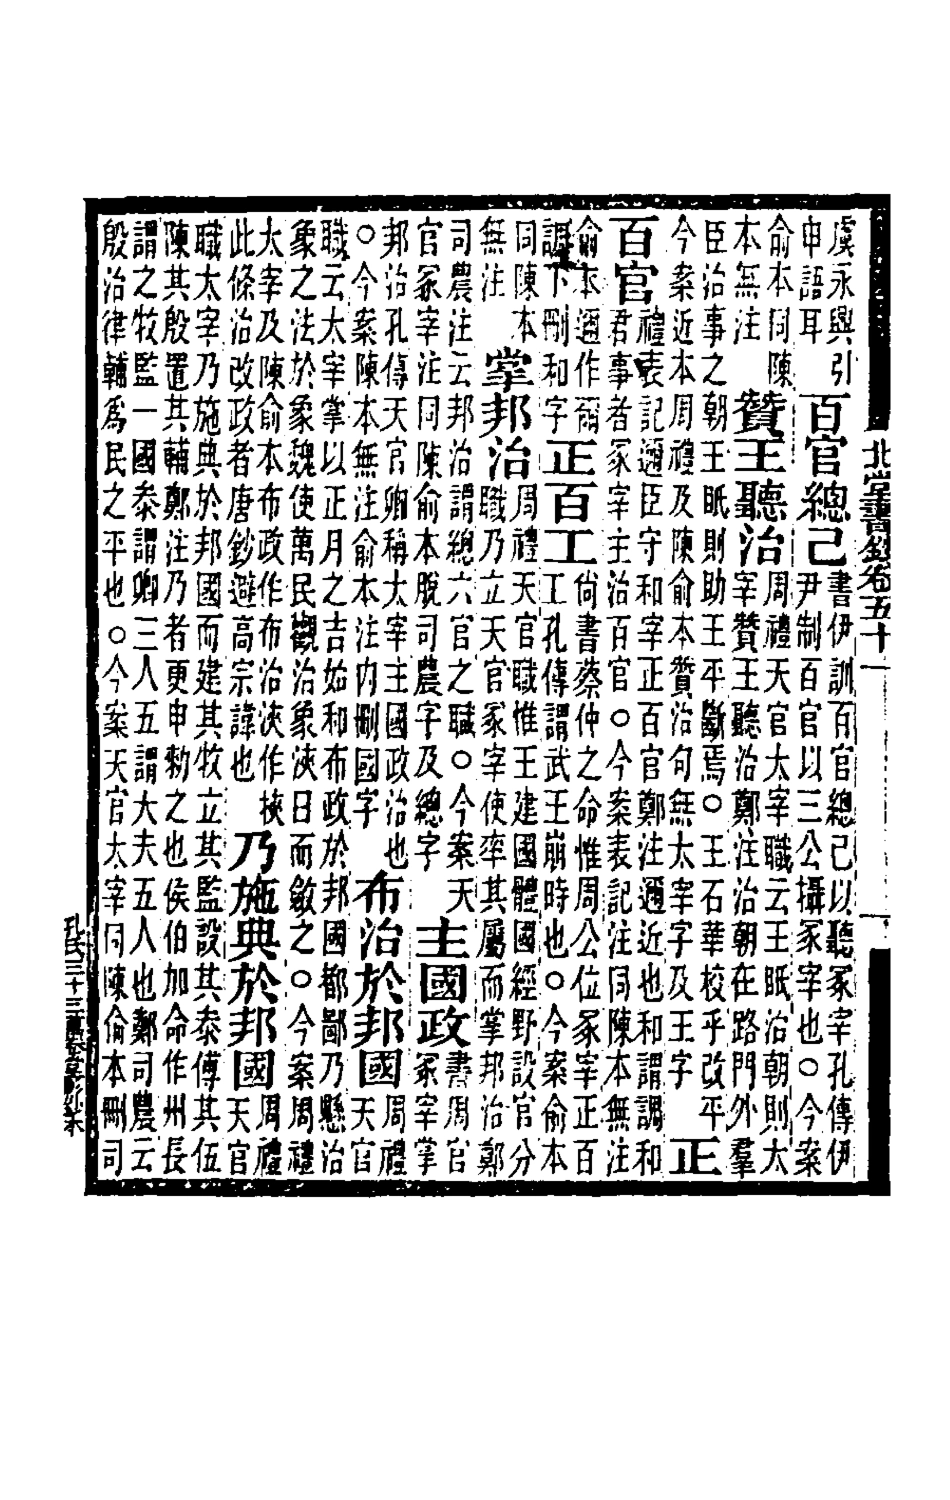 虞永興引
申語耳
百官總己
書伊訓百官總己以聽冢宰孔傳伊
尹制百官以三公攝冢宰也○今案
俞本同陳
本無注
贊王聽治
周禮天官太宰職云王眡治朝則太
宰贊王聽治鄭注治朝在路門外羣
臣治事之朝王眡則助王平斷焉○王石華校乎改平
今案近本周禮及陳俞本贊治句無太宰字及王字
正
百官
禮表記邇臣守和宰正百官鄭注邇近也和謂調和
君事者冢宰主治百官○今案表記注同陳本無注
俞本邇作爾
調下刪和字
正百工
尚書蔡仲之命惟周公位冢宰正百
工孔傳謂武王崩時也○今案俞本
同陳本
無注
掌邦治
周禮天官職惟王建國體國經野設官分
職乃立天官冢宰使率其屬而掌邦治鄭
司農注云邦治謂總六官之職○今案天
官冢宰注同陳俞本脫司農字及總字
主國政
書周官
冢宰掌
邦治孔傳天官卿稱太宰主國政治也
○今案陳本無注俞本注内刪國字
布治於邦國
周禮
天官
職云太宰掌以正月之吉始和布政於邦國都鄙乃懸治
象之法於象魏使萬民觀治象浹日而斂之○今案周禮
太宰及陳俞本布政作布治浹作挾
此條治改政者唐鈔避高宗諱也
乃施典於邦國
周禮
天官
職太宰乃施典於邦國而建其牧立其監設其泰傅其伍
陳其殷置其輔鄭注乃者更申勑之也侯伯加命作州長
謂之牧監一國泰謂卿三人五謂大夫五人也鄭司農云
殷治律輔爲民之平也○今案天官太宰同陳俞本刪司
北堂書鈔卷五十一
孔氏三十三萬卷堂影宋本